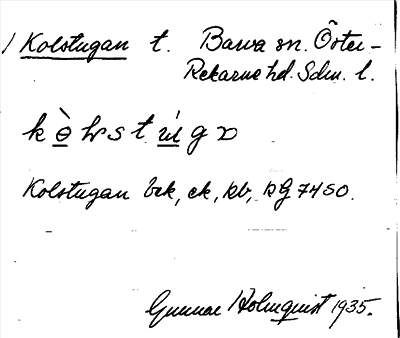 / Kolstugan t. Barva sn. Öster-
Rekarne hd. Sdm. l.
Kolstugan bek, ek, kb, RG 7450.
Gunnar Holmquist 1935.